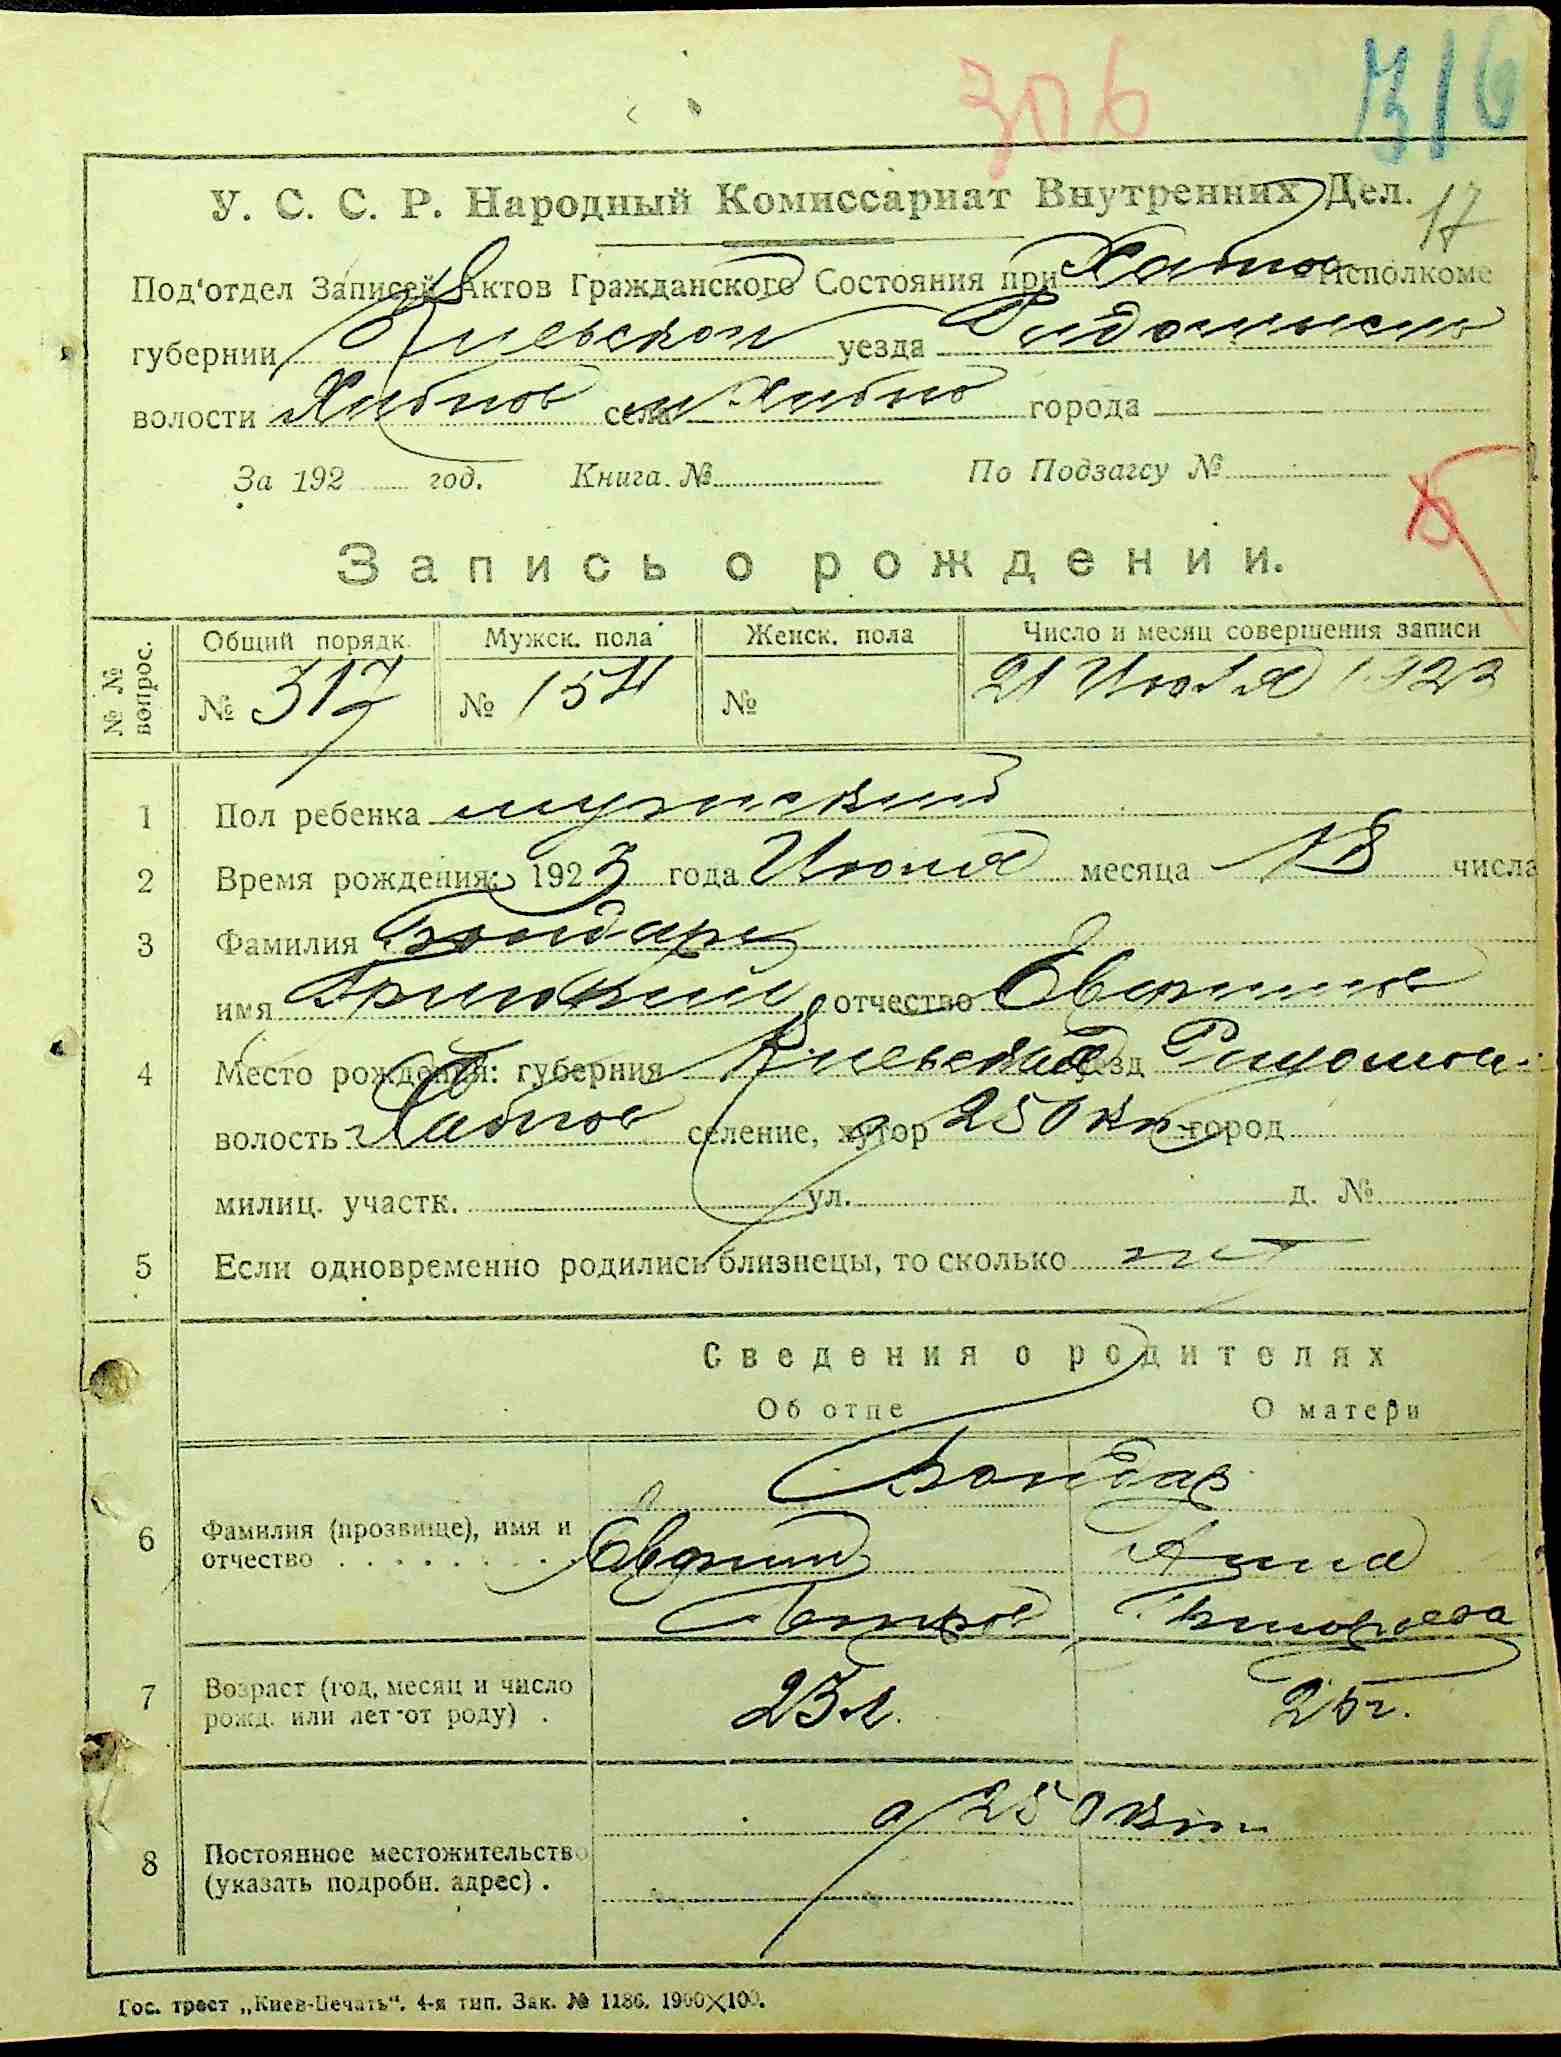 306 316
У. С. С. Р. Народный Комиссариат Внутренних Дел. 17
Под'отдел Записей Актов Гражданского Состояния при Хабно Исполкоме
губернии Киевской уезда Радомысль
волости Хабнов села м Хабно города
За 192 год. Книга. № По Подзагсу №
Запись о рождении.
№ № вопрос. Общий порядк. Мужск. пола Женск. пола Число и месяц совершения записи
№ 317 № 154 № 21 Июля 1923
1 Пол ребенка мужский
2 Время рождения: 1923 года Июля месяца 18 числа
3 Фамилия Бондарь
имя отчество
4 Место рождения: губерния Киевская уезд
волость Хабнов селение, хутор город
милиц. участк. ул. д. №
5 Если одновременно родились близнецы, то сколько нет
Сведения о родителях
Об отце О матери
Бондар
6 Фамилия (прозвище), имя и
отчество Анна
Петров Григорьева
7 Возраст (год, месяц и число
рожд. или лет от роду) . 23 л. 25 г.
8 Постоянное местожительство
(указать подробн. адрес) .
Гос. трест „Киев-Печать“. 4-я тип. Зак. № 1186. 1900×100.